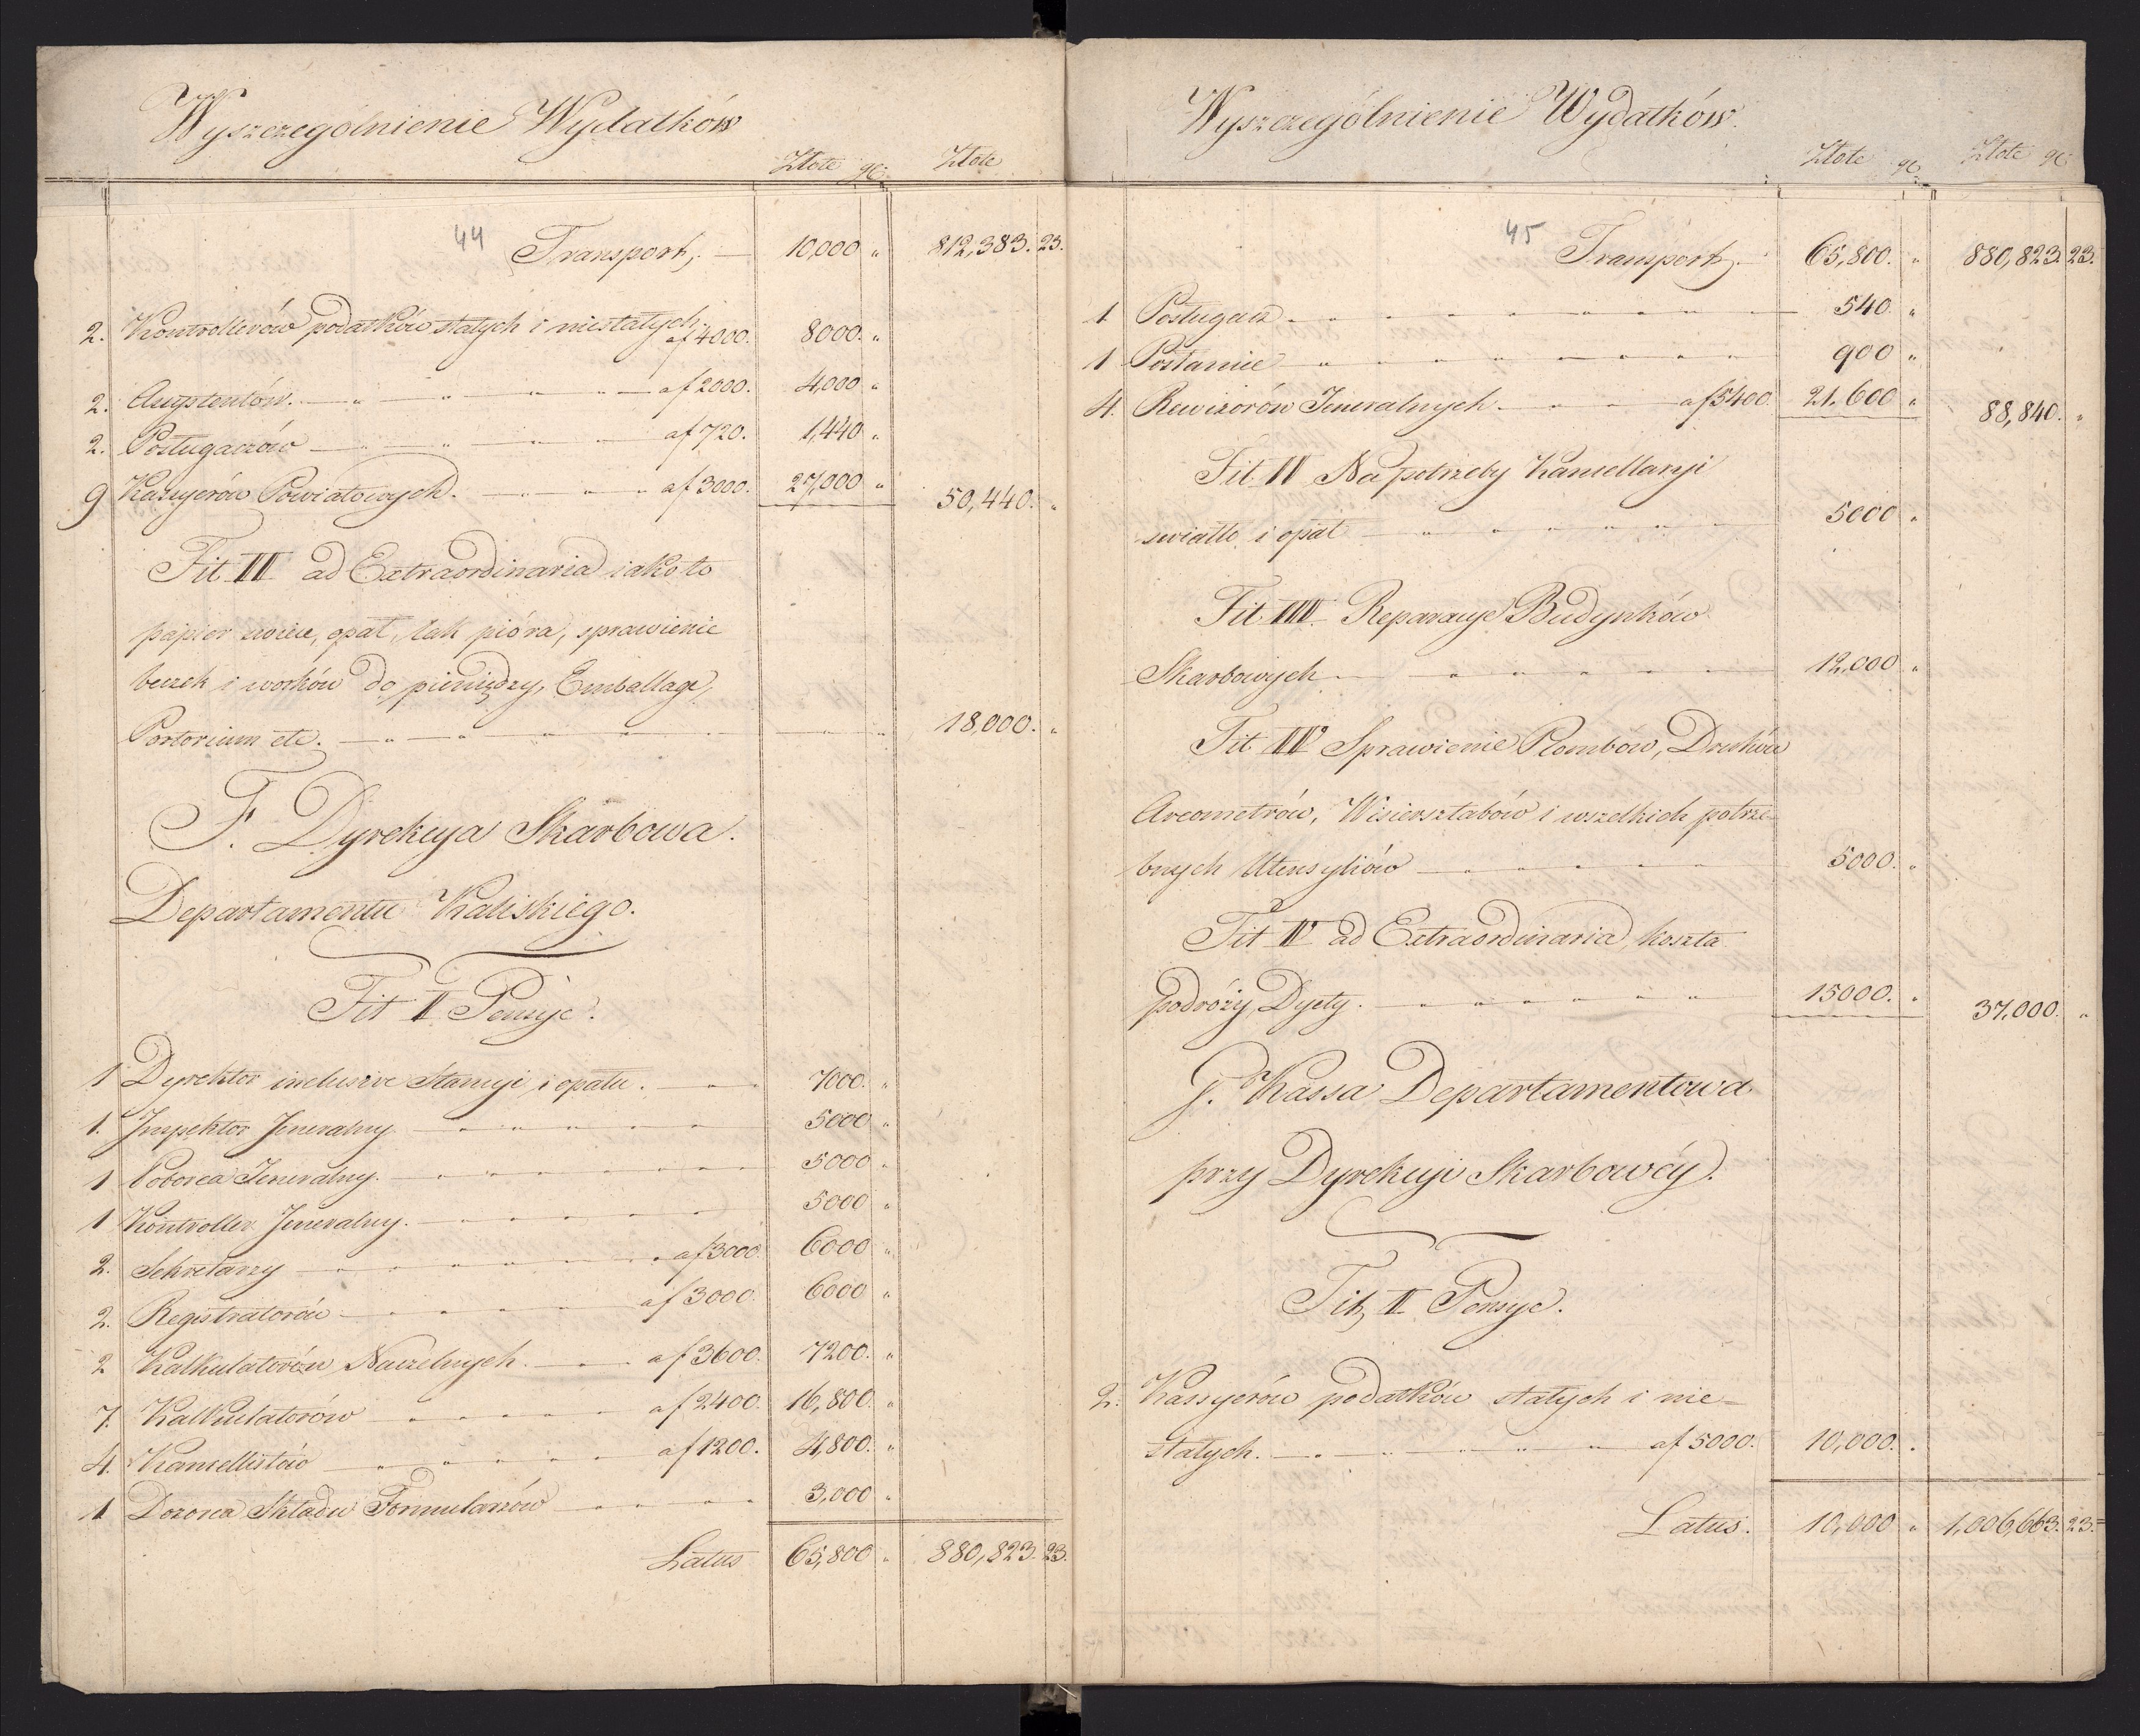 Wyszczególnienie Wydatków
Złote gr. Złote
44
Transport. — 10,000 „ 812,383. 23.
2. Kontrollerów podatków stałych i niestałych
af 4000. 8000. „
2. Assystentów. — af 2000. 4,000 „
2. Posługaczów — af 720. 1,440 „
9 Kassyerów Powiatowych. — af 3000. 27,000 „ 50,440. „
Tit III ad Extraordinaria iako to
papier świece, opał, lak pióra, sprawienie
beczek i worków do pieniędzy, Emballage,
Portorium etc. — 18,000. „
F. Dyrekcya Skarbowa.
Departamentu Kaliskiego.
Tit II Pensye.
1 Dyrektor inclusive Stancyi i opału. — 7000. „
1. Inspektor Jeneralny — 5000 „
1 Poborca Jeneralny. — 5000 „
1 Kontroller Jeneralny. — 5000 „
2. Sekretarzy — af 3000. 6000 „
2. Registratorów — af 3000. 6000 „
2 Kalkulatorów Naczelnych. — af 3600. 7200. „
7. Kalkulatorów — af 2400. 16,800. „
4. Kancellistów — af 1200. 4,800. „
1 Dozorca Składu Formularzów — 3,000 „
Latus 65,800 „ 880,823. 23.
Wyszczególnienie Wydatków.
Złote gr. Złote gr.
45
Transport. — 65,800. „ 880,823. 23.
1 Posługacz — 540. „
1 Posłaniec — 900 „
4. Rewizorów Jeneralnych. — af 5400. 21,600 „ 88,840. „
Na potrzeby Kancellaryi
światło i opał — 5000 „
Reparacye Budynków
Skarbowych — 12,000 „
Sprawienie Plombów, Druków
Areometrów, Wisiersztabów i wszelkich potrze-
bnych Utensyliów — 5000. „
ad Extraordinaria, koszta
podróży, Dyety. — 15000. „ 37,000. „
G. Kassa Departamentowa
przy Dyrekcyi Skarbowéy.
Tit, II Pensye.
2. Kassyerów podatków stałych i nie-
stałych. — af 5000. 10,000. „
Latus. 10,000 „ 1,006,663. 23.